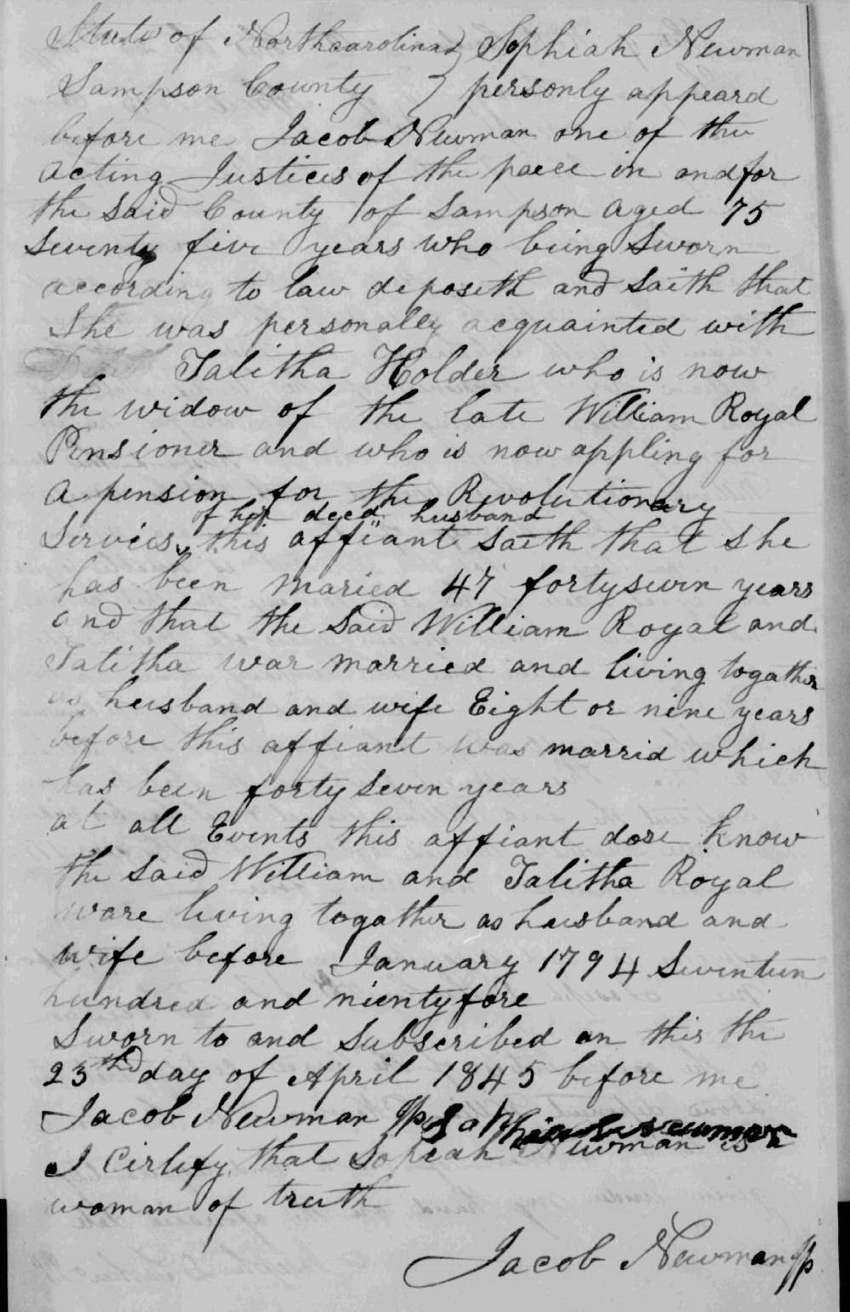 State of Northcarolina } Sophiah Newman
Sampson County } personly appeard
before me Jacob Newman one of the
acting Justices of the peace in and for
the said County of Sampson aged 75
Seventy five years who being Sworn
according to law deposeth and Saith that
She was personally acquainted with
Talitha Holder who is now
the widow of the late William Royal
Pensioner and who is now appling for
a pension for the Revolutionary
of her deced husband
Servises this affiant Saith that she
has been maried 47 forty sevin years
and that the said William Royal and
Talitha war married and living togather
as husband and wife Eight or nine years
before this affiant was marrid which
has been forty Seven years
at all Events this affiant dose know
the said William and Talitha Royal
ware living togather as husband and
wife before January 1794 Seventeen
hundred and nientyfore
Sworn to and Subscribed on this the
23thd day of April 1845 before me
Jacob Newman Jp Newman
I Cirtify that Sopeah Newman is a
woman of truth
Jacob Newman Jp